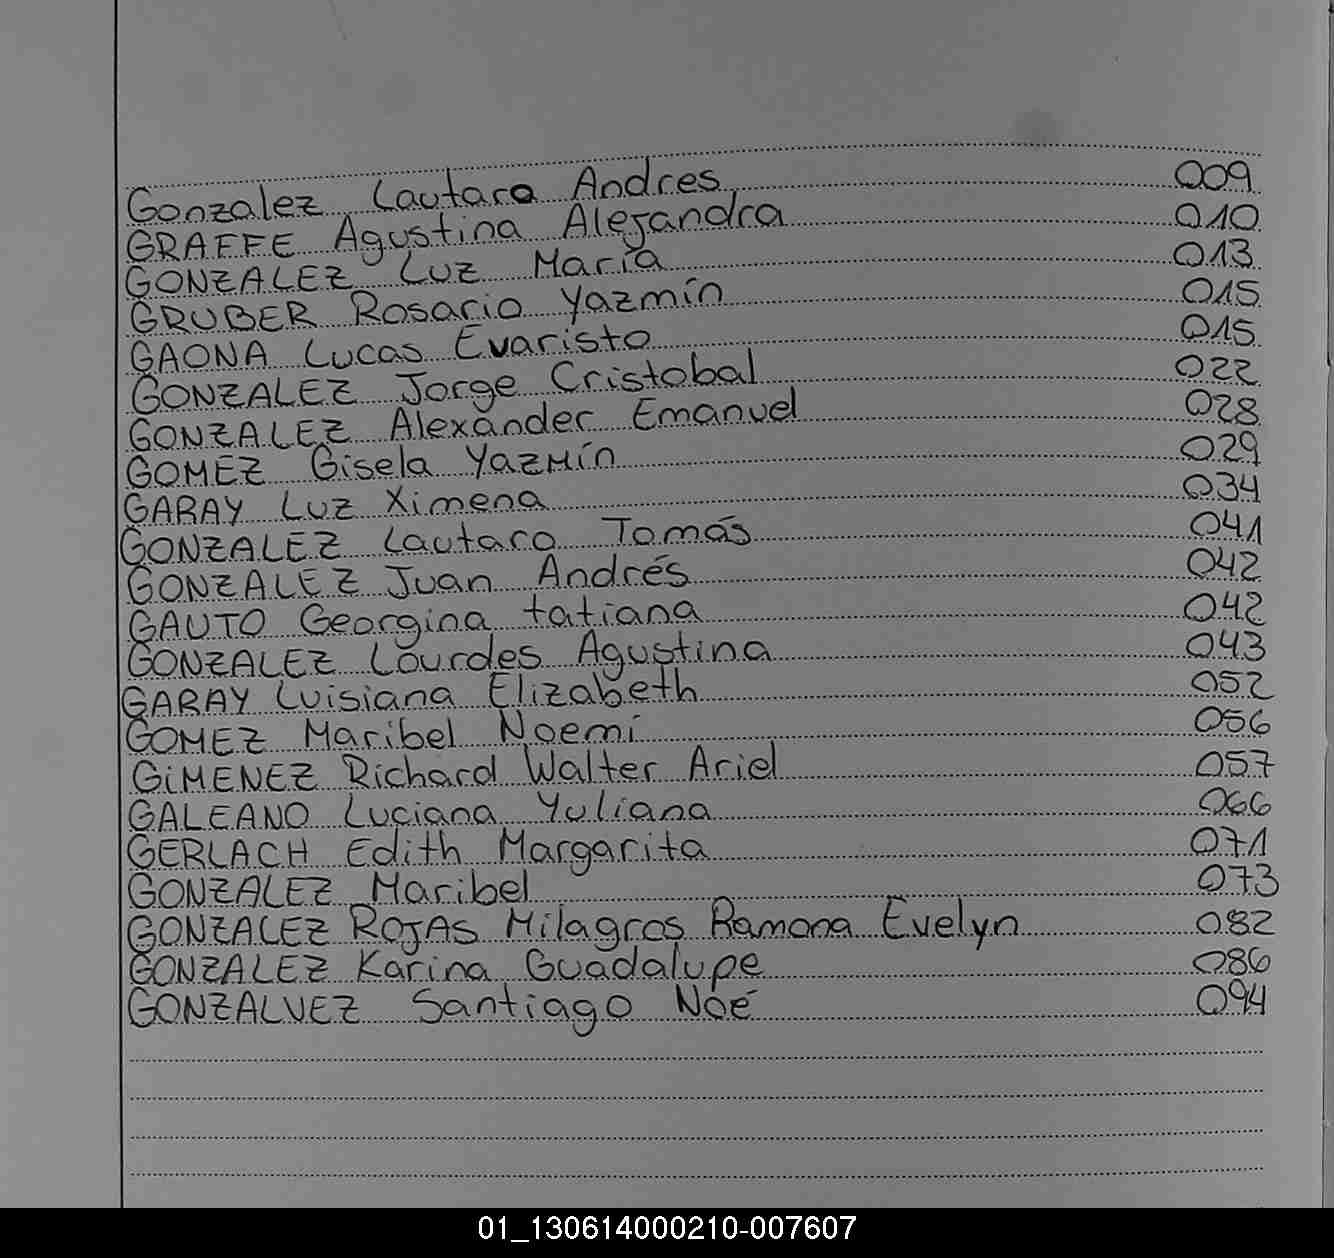 Gonzalez Lautaro Andres 009
GRAFFE Agustina Alejandra 010
GONZALEZ Luz María 013
GRUBER Rosario Yazmín 015
GAONA Lucas Evaristo 015
GONZALEZ Jorge Cristobal 022
GONZALEZ Alexander Emanuel 028
GOMEZ Gisela Yazmín 029
GARAY Luz Ximena 034
GONZALEZ Lautaro Tomás 041
GONZALEZ Juan Andrés 042
GAUTO Georgina tatiana 042
GONZALEZ Lourdes Agustina 043
GARAY Luisiana Elizabeth 052
GOMEZ Maribel Noemí 056
GiMENEZ Richard Walter Ariel 057
GALEANO Luciana Yuliana 066
GERLACH Edith Margarita 071
GONZALEZ Maribel 073
GONZALEZ ROJAS Milagros Ramona Evelyn 082
GONZALEZ Karina Guadalupe 086
GONZALVEZ Santiago Noé 094
01_130614000210-007607